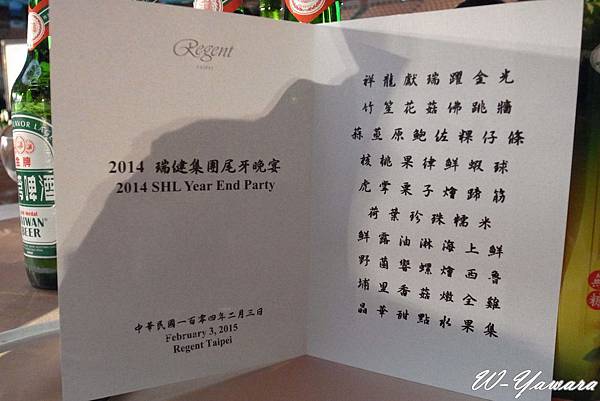 Regent
TAIPEI
2014 瑞健集團尾牙晚宴
2014 SHL Year End Party
中華民國一百零四年二月三日
February 3, 2015
Regent Taipei
祥龍獻瑞躍金光
竹笙花菇佛跳牆
蒜蔥原鮑佐粿仔條
核桃果律鮮蝦球
虎掌栗子燴蹄筋
荷葉珍珠糯米
鮮露油淋海上鮮
野菌響螺燴西魯
埔里香菇燉全雞
晶華甜點水果集
金牌
啤酒
TAIWAN
BEER
W-Yawara